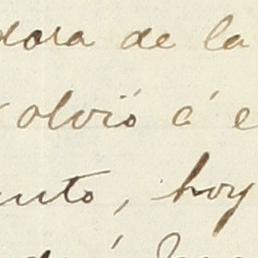 dora de la
olvió á e
nto, hoy